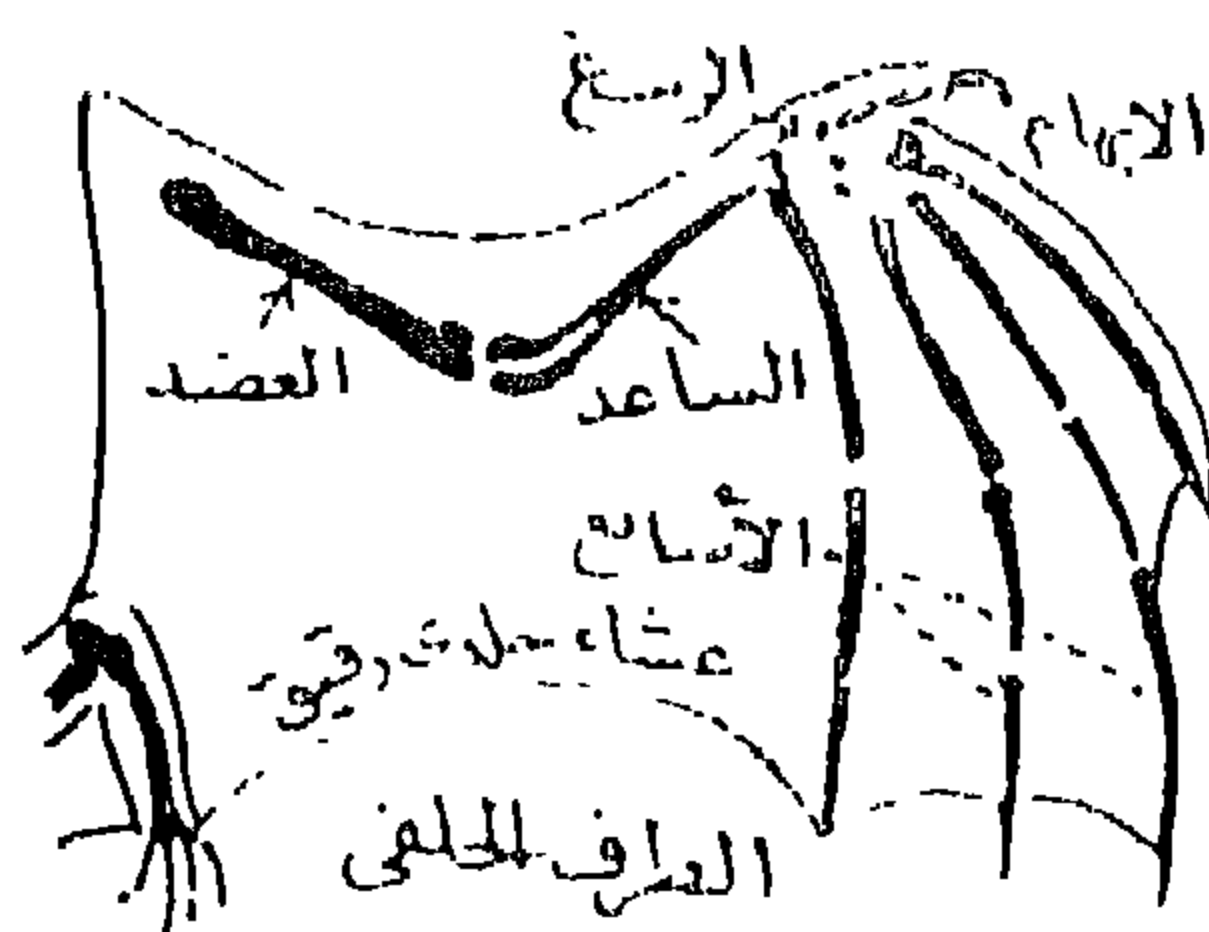 الرسغ
الإبهام
العضد
الساعد
الأصابع
غشاء جلدى رقيق
الطرف الخلفى